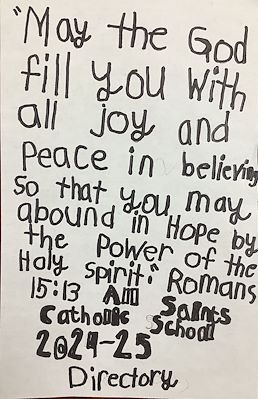 "May the God
fill you with
all joy and
Peace in believing
So that you may
abound in Hope by
the Power of the
Holy Spirit." Romans
15:13 All Saints
Catholic School
2024-25
Directory